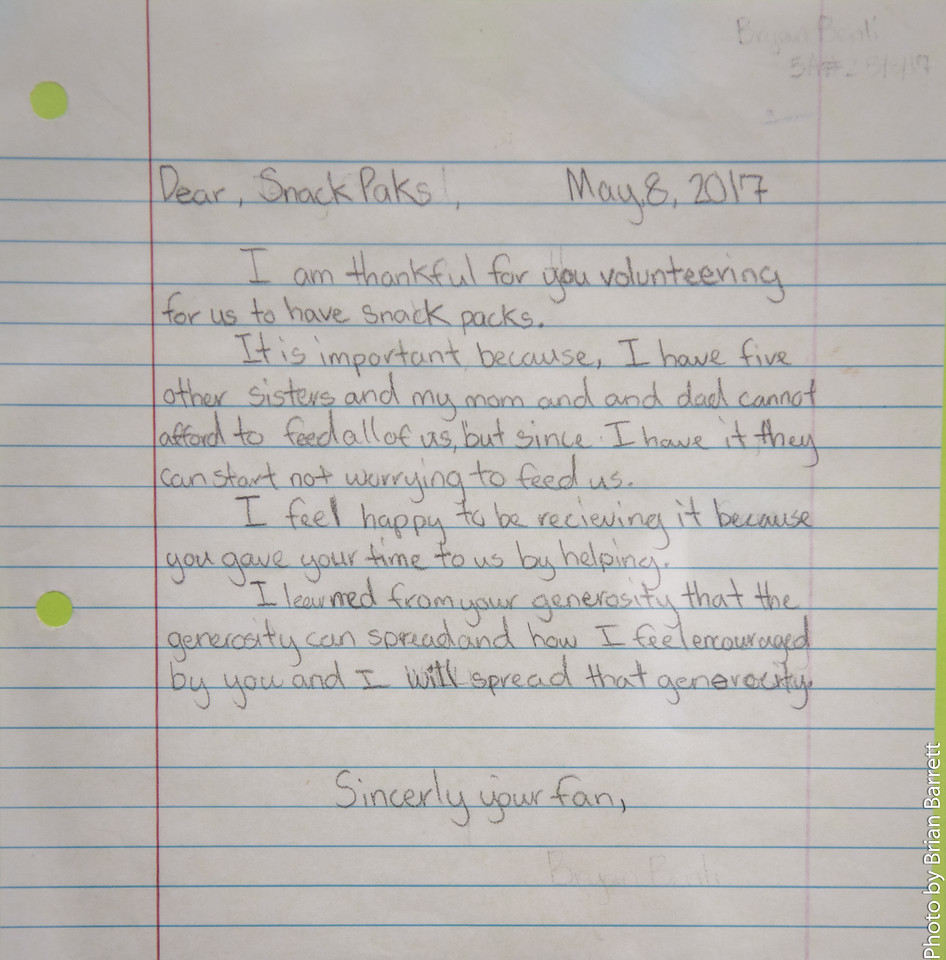 Dear, Snack Paks!, May,8, 2017
I am thankful for you volunteering
for us to have snack packs.
It is important because, I have five
other sisters and my mom and and dad cannot
afford to feed all of us, but since I have it they
can start not worrying to feed us.
I feel happy to be recieving it because
you gave your time to us by helping.
I learned from your generosity that the
generosity can spread and how I feel encouraged
by you and I will spread that generocity.
Sincerly your fan,
Photo by Brian Barrett